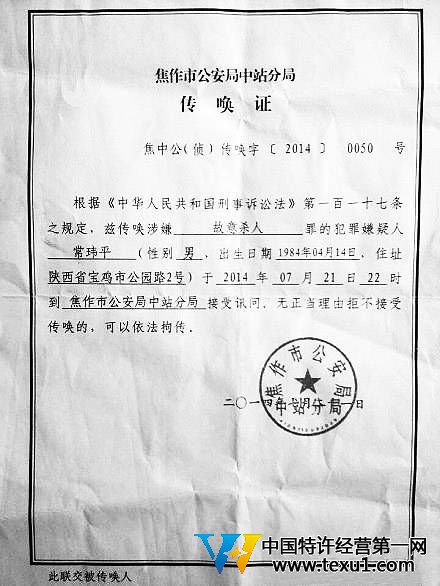 焦作市公安局中站分局
传 唤 证
焦中公(侦)传唤字〔2014〕0050 号
根据《中华人民共和国刑事诉讼法》第一百一十七条
之规定，兹传唤涉嫌 故意杀人 罪的犯罪嫌疑人
常玮平 (性别 男，出生日期 1984年04月14日，住址
陕西省宝鸡市公园路2号）于 2014 年 07 月 21 日 22 时
到 焦作市公安局中站分局 接受讯问。无正当理由拒不接受
传唤的，可以依法拘传。
焦作市公安局
中站分局
二〇一四年七月二十一日
中国特许经营第一网
www.texu1.com
此联交被传唤人